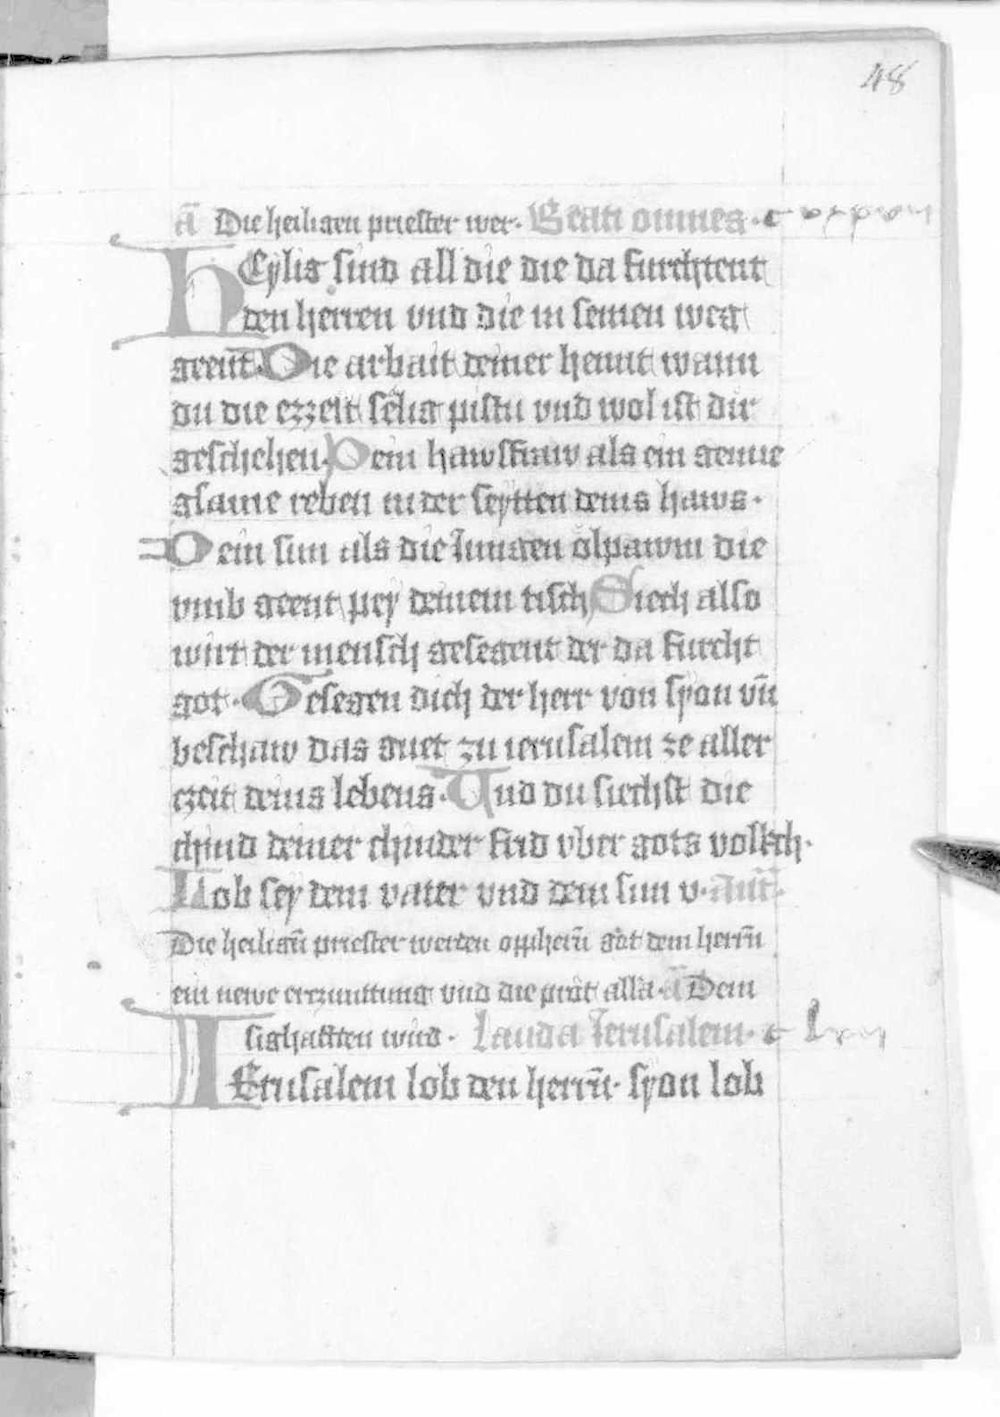 48
a̅ Die heiligen priester wer· Beati omnes·
HEylig sind all die die da furchtent
den herren vnd die in seinen weg
geent̅ Die arbait deiner hennt wann
du die ezzeit sělig pistu vnd wol ist dir
geschehen Dein hawsfraw als ein genue
gsame reben in der seÿtten deins haws·
Dein sun als die Jungen ölpawm die
vmb geent peÿ deinem tisch Siech also
wirt der mensch gesegent der da furcht
got· Gesegen dich der herr von sÿon vn̅
beschaw das guet zu ierusalem ze aller
czeit deins lebens· Und du siechst die
chind deiner chinder frid vber gots volkch·
Lob seÿ dem vater vnd dem sun v·
Die heilign̅ priester werden opphern̅ got dem herrn̅
ein newe errzunttung vnd die prot alla· a̅ Dem
sighafften wird· Lauda Jerusalem·
IErusalem lob den herrn̅· sÿon lob